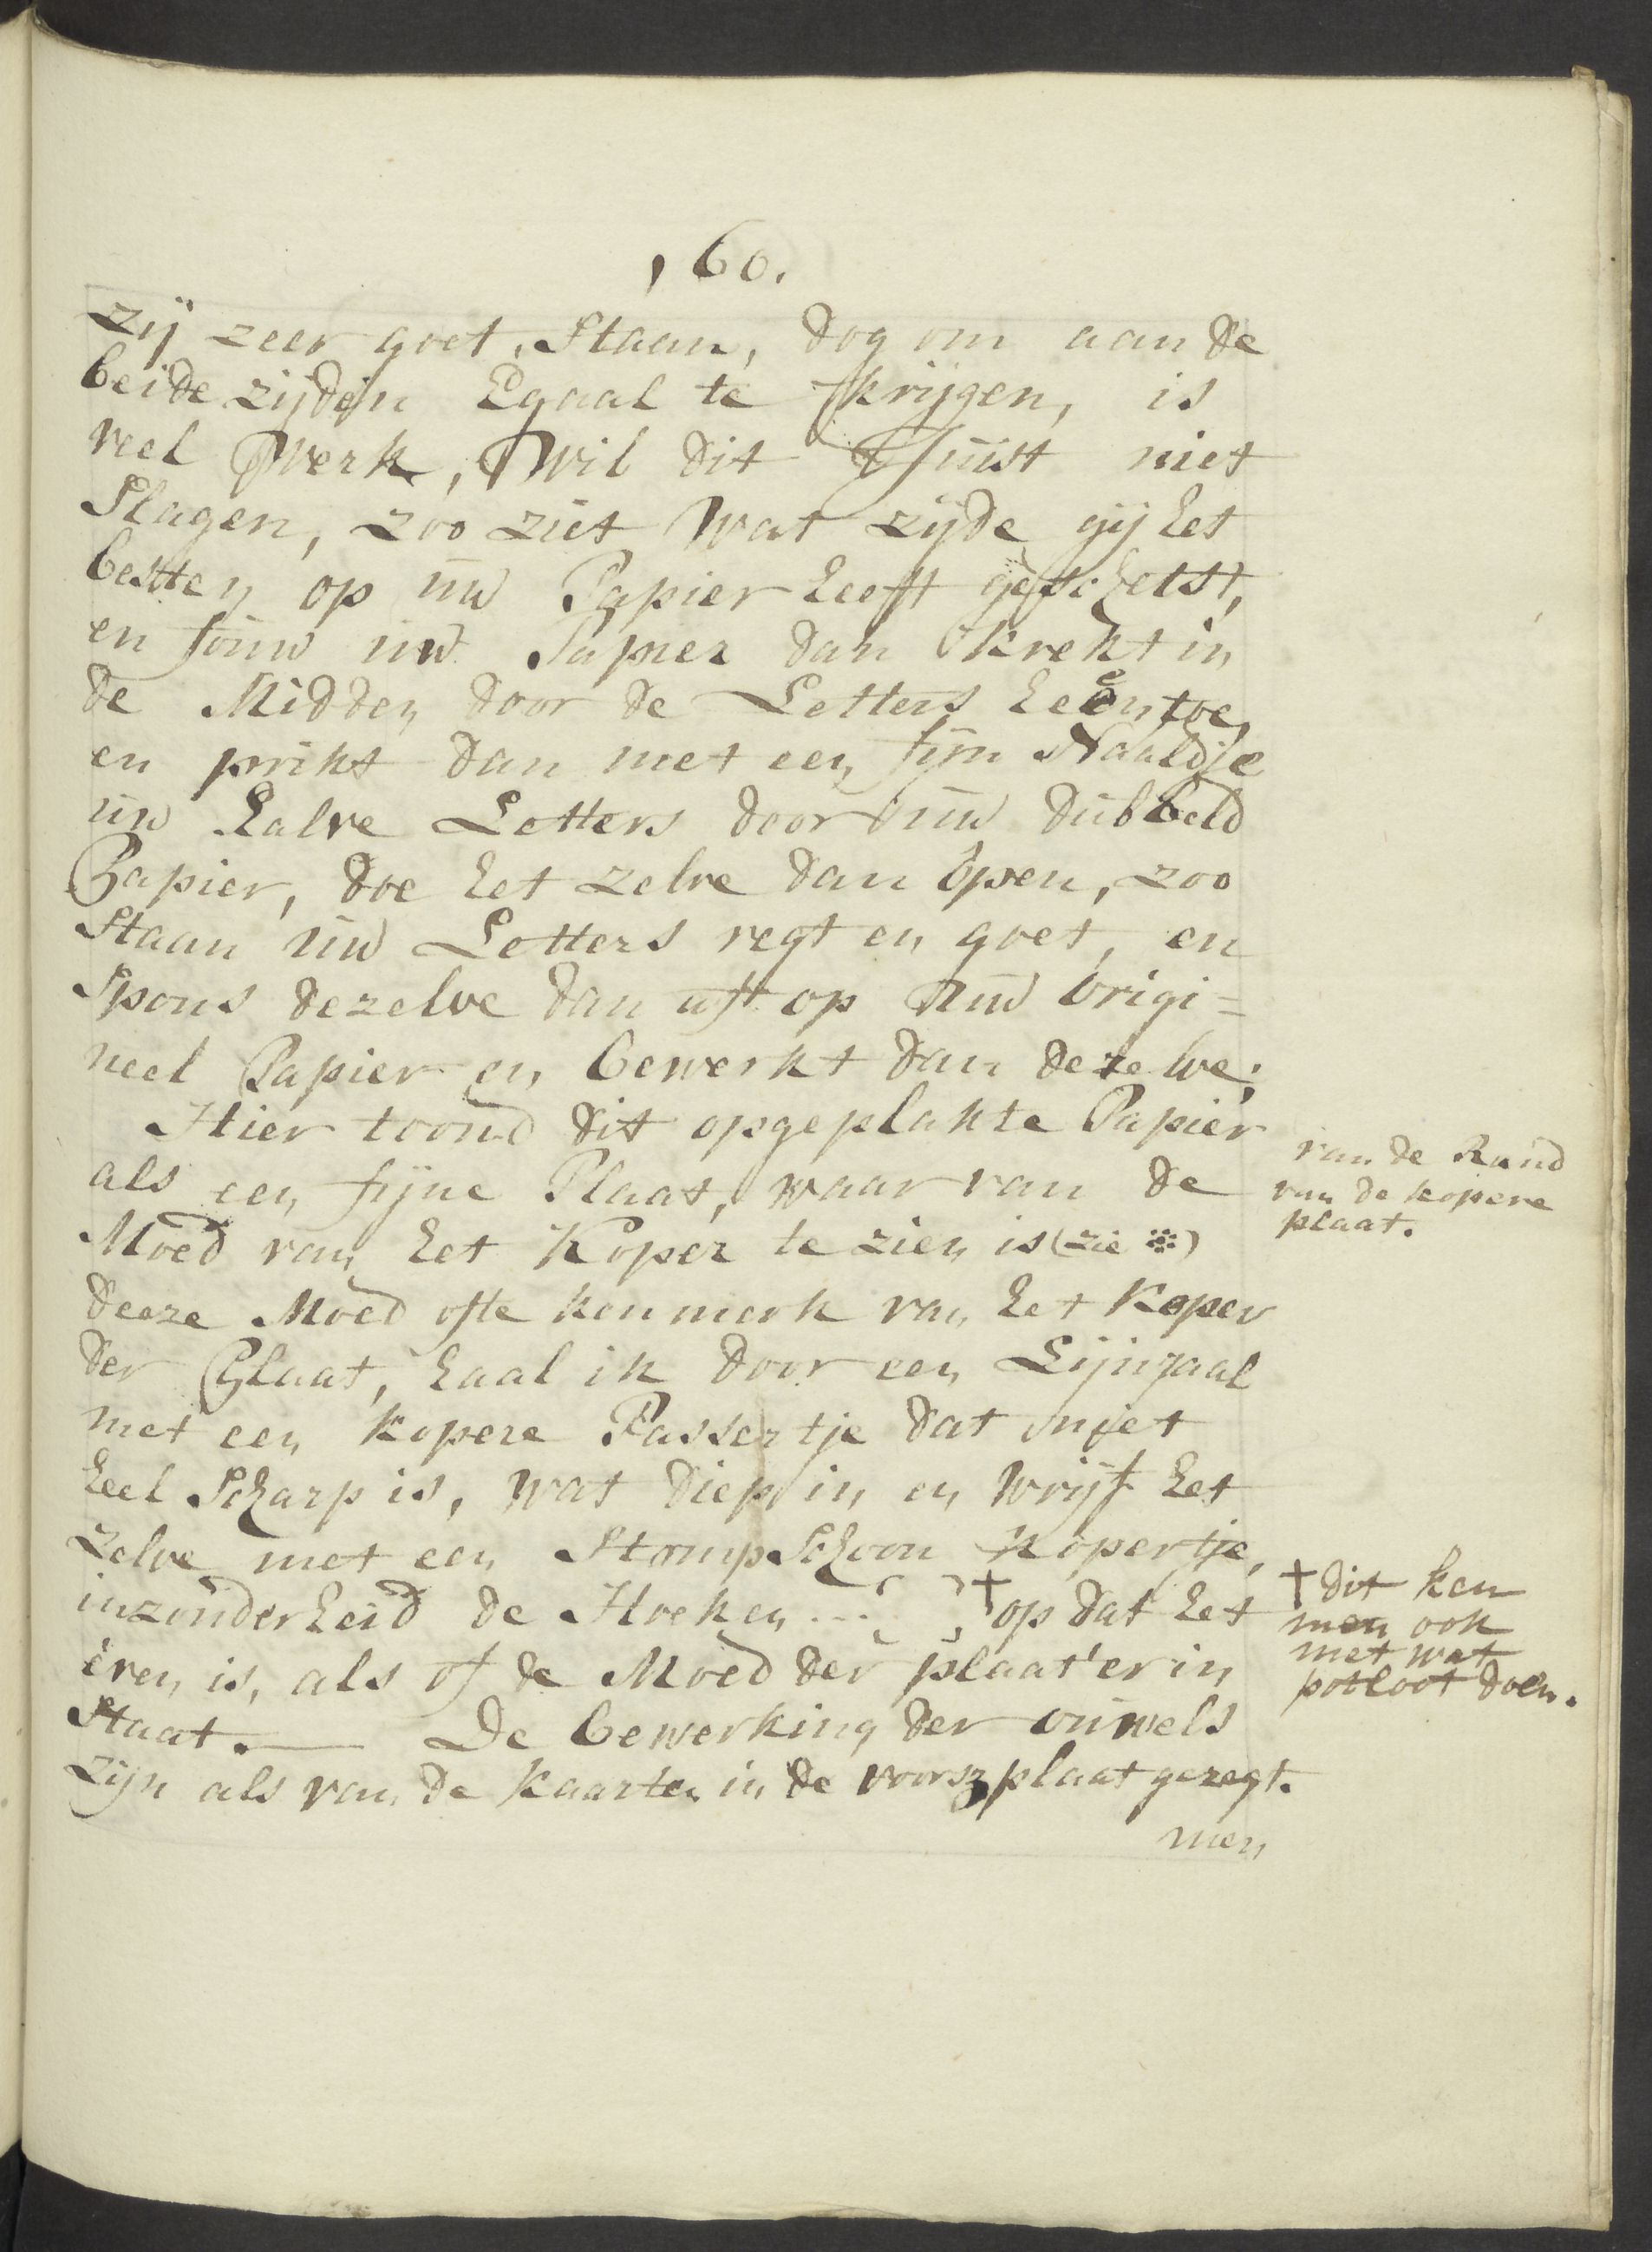 , 60.
zij zeer goet Staan, dog om aan de
beide zijden Egaal te krijgen, is
veel Werk, Wil dit Juist niet
Slagen, zoo ziet Wat zijde gij het
besten op uw Papier heeft geschetst,
en fouw uw Papier dan krekt in
de Midden door de Letters heen toe,
en prikt dan met een fijn Naaldje
uw halve Letters door uw dubbeld
Papier, doe het zelve dan open, zoo
Staan uw Letters regt en goet, en
Spons dezelve dan uft op uw origi=
neel Papier en bewerkt dan dezelve;
Hier toond dit opgeplakte Papier
als een fijne Plaat, waar van de
Moed van het Koper te zien is (zie ※)
van de Rand
van de kopere
plaat.
deeze Moed ofte kenmerk van het Koper
der Plaat, haal ik door een Lijnjaal
met een kopere Passertje dat niet
heel Scharp is, wat diep in en Wrijf het
zelve met een Stomp Schoon kopertje,
inzonderheid de Hoeken ... † op dat het
even is, als of de Moed der plaat er in
Staat. — De bewerking der ouwels
zijn als van de Kaarten in de voorsz plaat gezegt.
† dit ken
men ook
met wat
potloot doen.
men